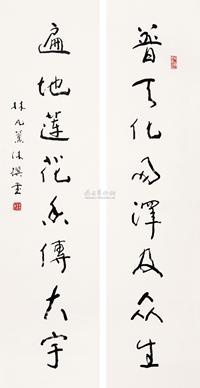 普天化雨澤及众生
遍地蓮花香傳大宇
林凡薰沐撰書